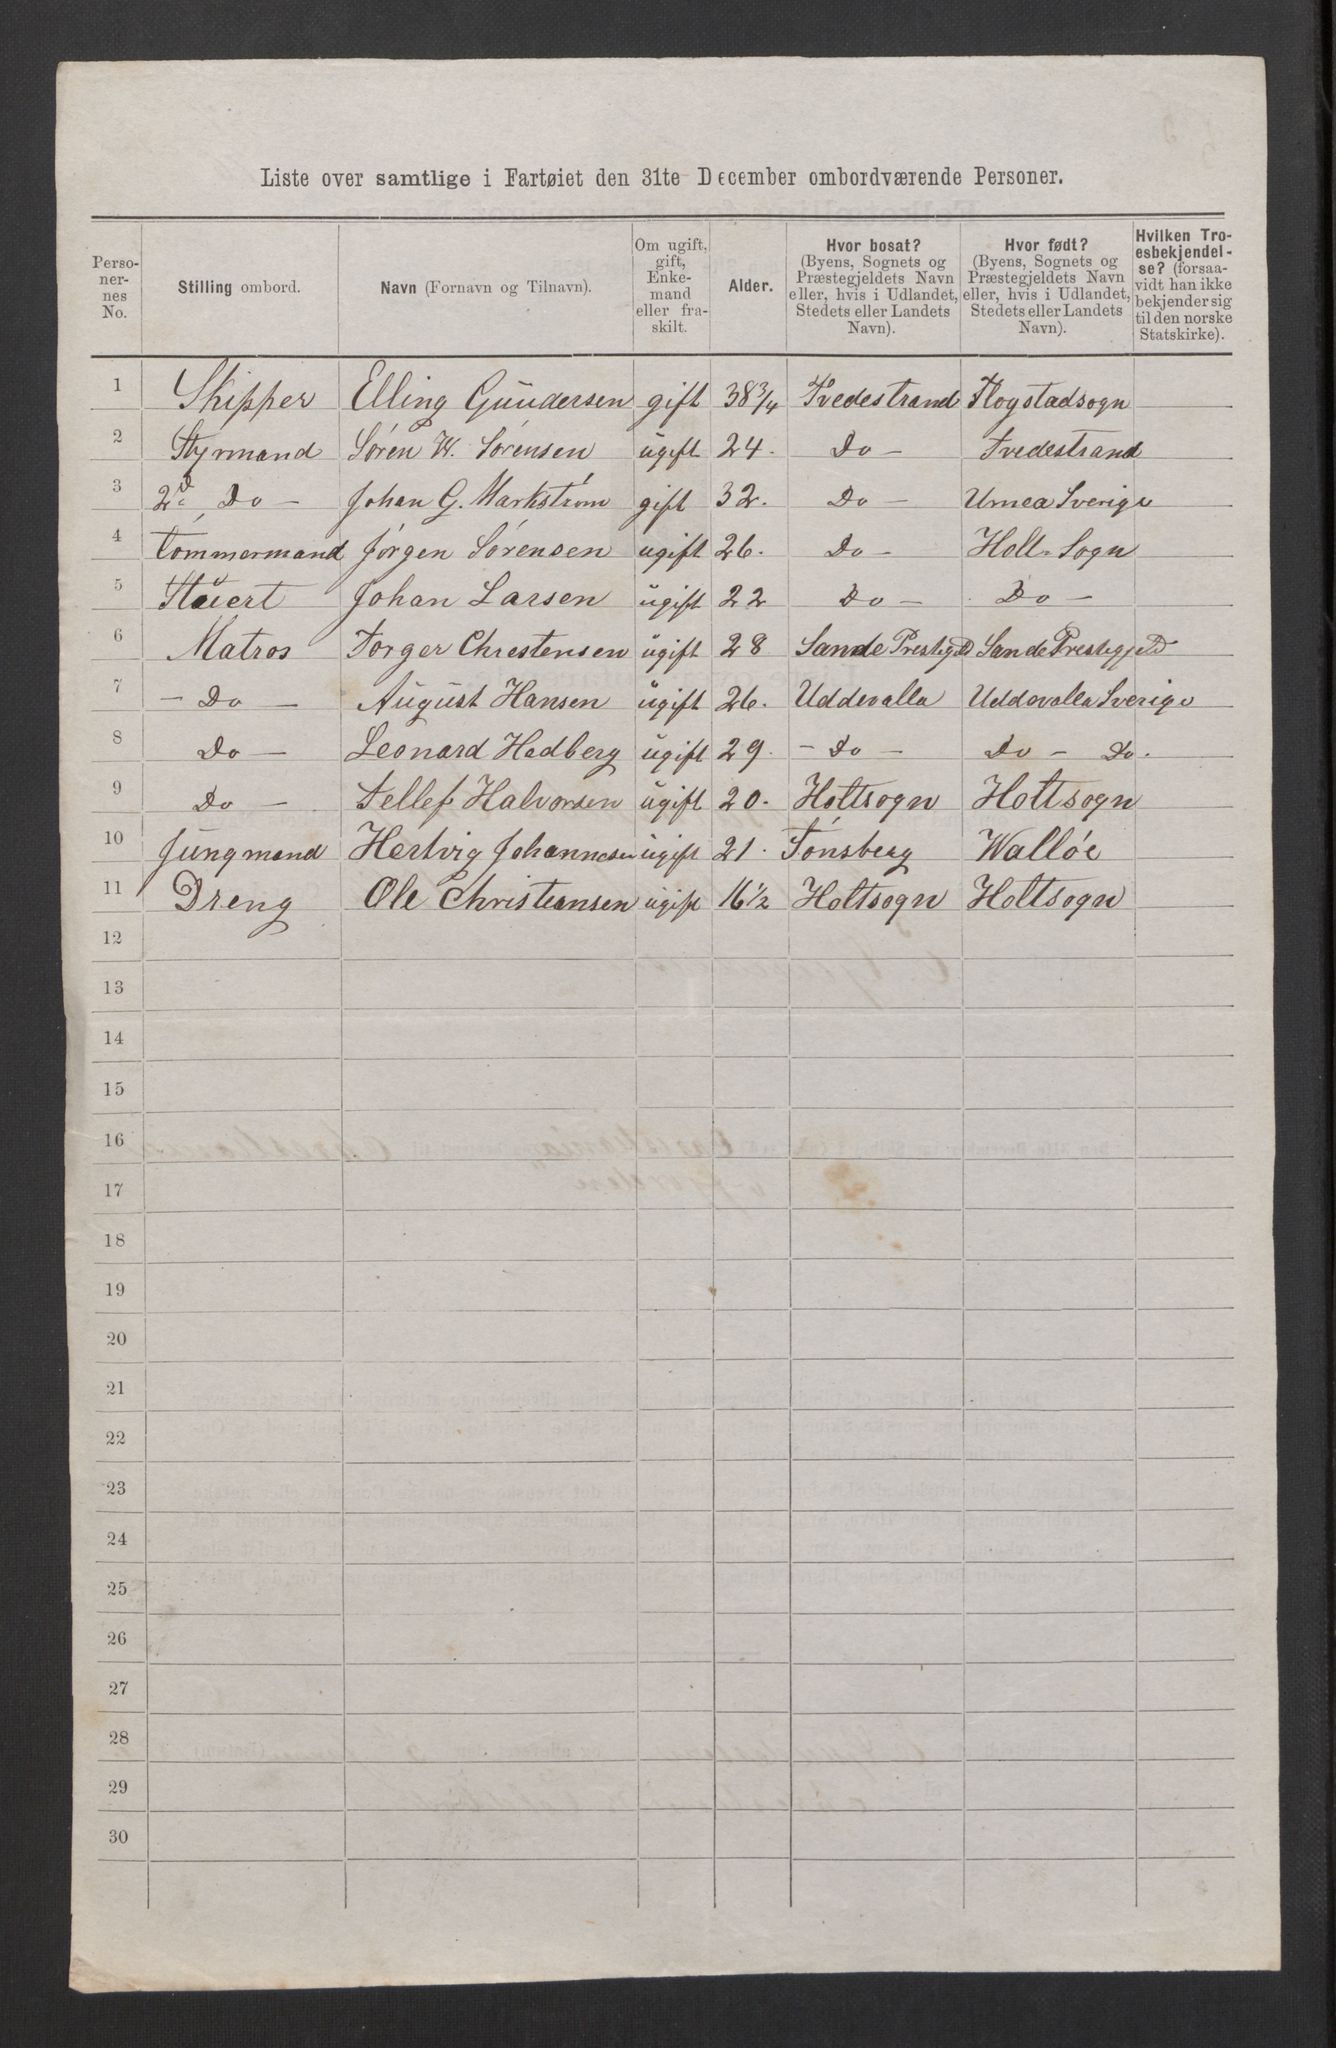 Liste over samtlige i Fartøiet den 31te December ombordværende Personer.
Perso-nernes No. | Stilling ombord. | Navn (Fornavn og Tilnavn). | Om ugift, gift, Enke-mand eller fra-skilt. | Alder. | Hvor bosat? (Byens, Sognets og Præstegjeldets Navn eller, hvis i Udlandet, Stedets eller Landets Navn). | Hvor født? (Byens, Sognets og Præstegjeldets Navn eller, hvis i Udlandet, Stedets eller Landets Navn). | Hvilken Tro-esbekjendel-se? (forsaa-vidt han ikke bekjender sig til den norske Statskirke).
1 Skipper Elling Gundersen gift 38 3/4 Tvedestrand Flogstadsogn
2 Styrmand Søren W. Sørensen ugift 24. Do – Tvedestrand
3 2d Do – Johan G. Markstrøm gift 32. Do – Umea Sverige
4 Tømmermand Jørgen Sørensen ugift 26. Do – Holt-Sogn
5 Stuert Johan Larsen ugift 22 Do – Do –
6 Matros Torger Chrestensen ugift 28 Sande Prestegjd Sande Prestegjeld
7 – Do – August Hansen ugift 26. Uddevalla Uddevalla Sverige
8 Do – Leonard Hedberg ugift 29. – Do – Do – Do.
9 Do – Tellef Halvorsen ugift 20. Holtsogn Holtsogn
10 Jungmand Hertvig Johannesen ugift 21. Tønsberg Walløe
11 Dreng Ole Christiansen ugift 16 1/2 Holtsogn Holtsogn
12
13
14
15
16
17
18
19
20
21
22
23
24
25
26
27
28
29
30